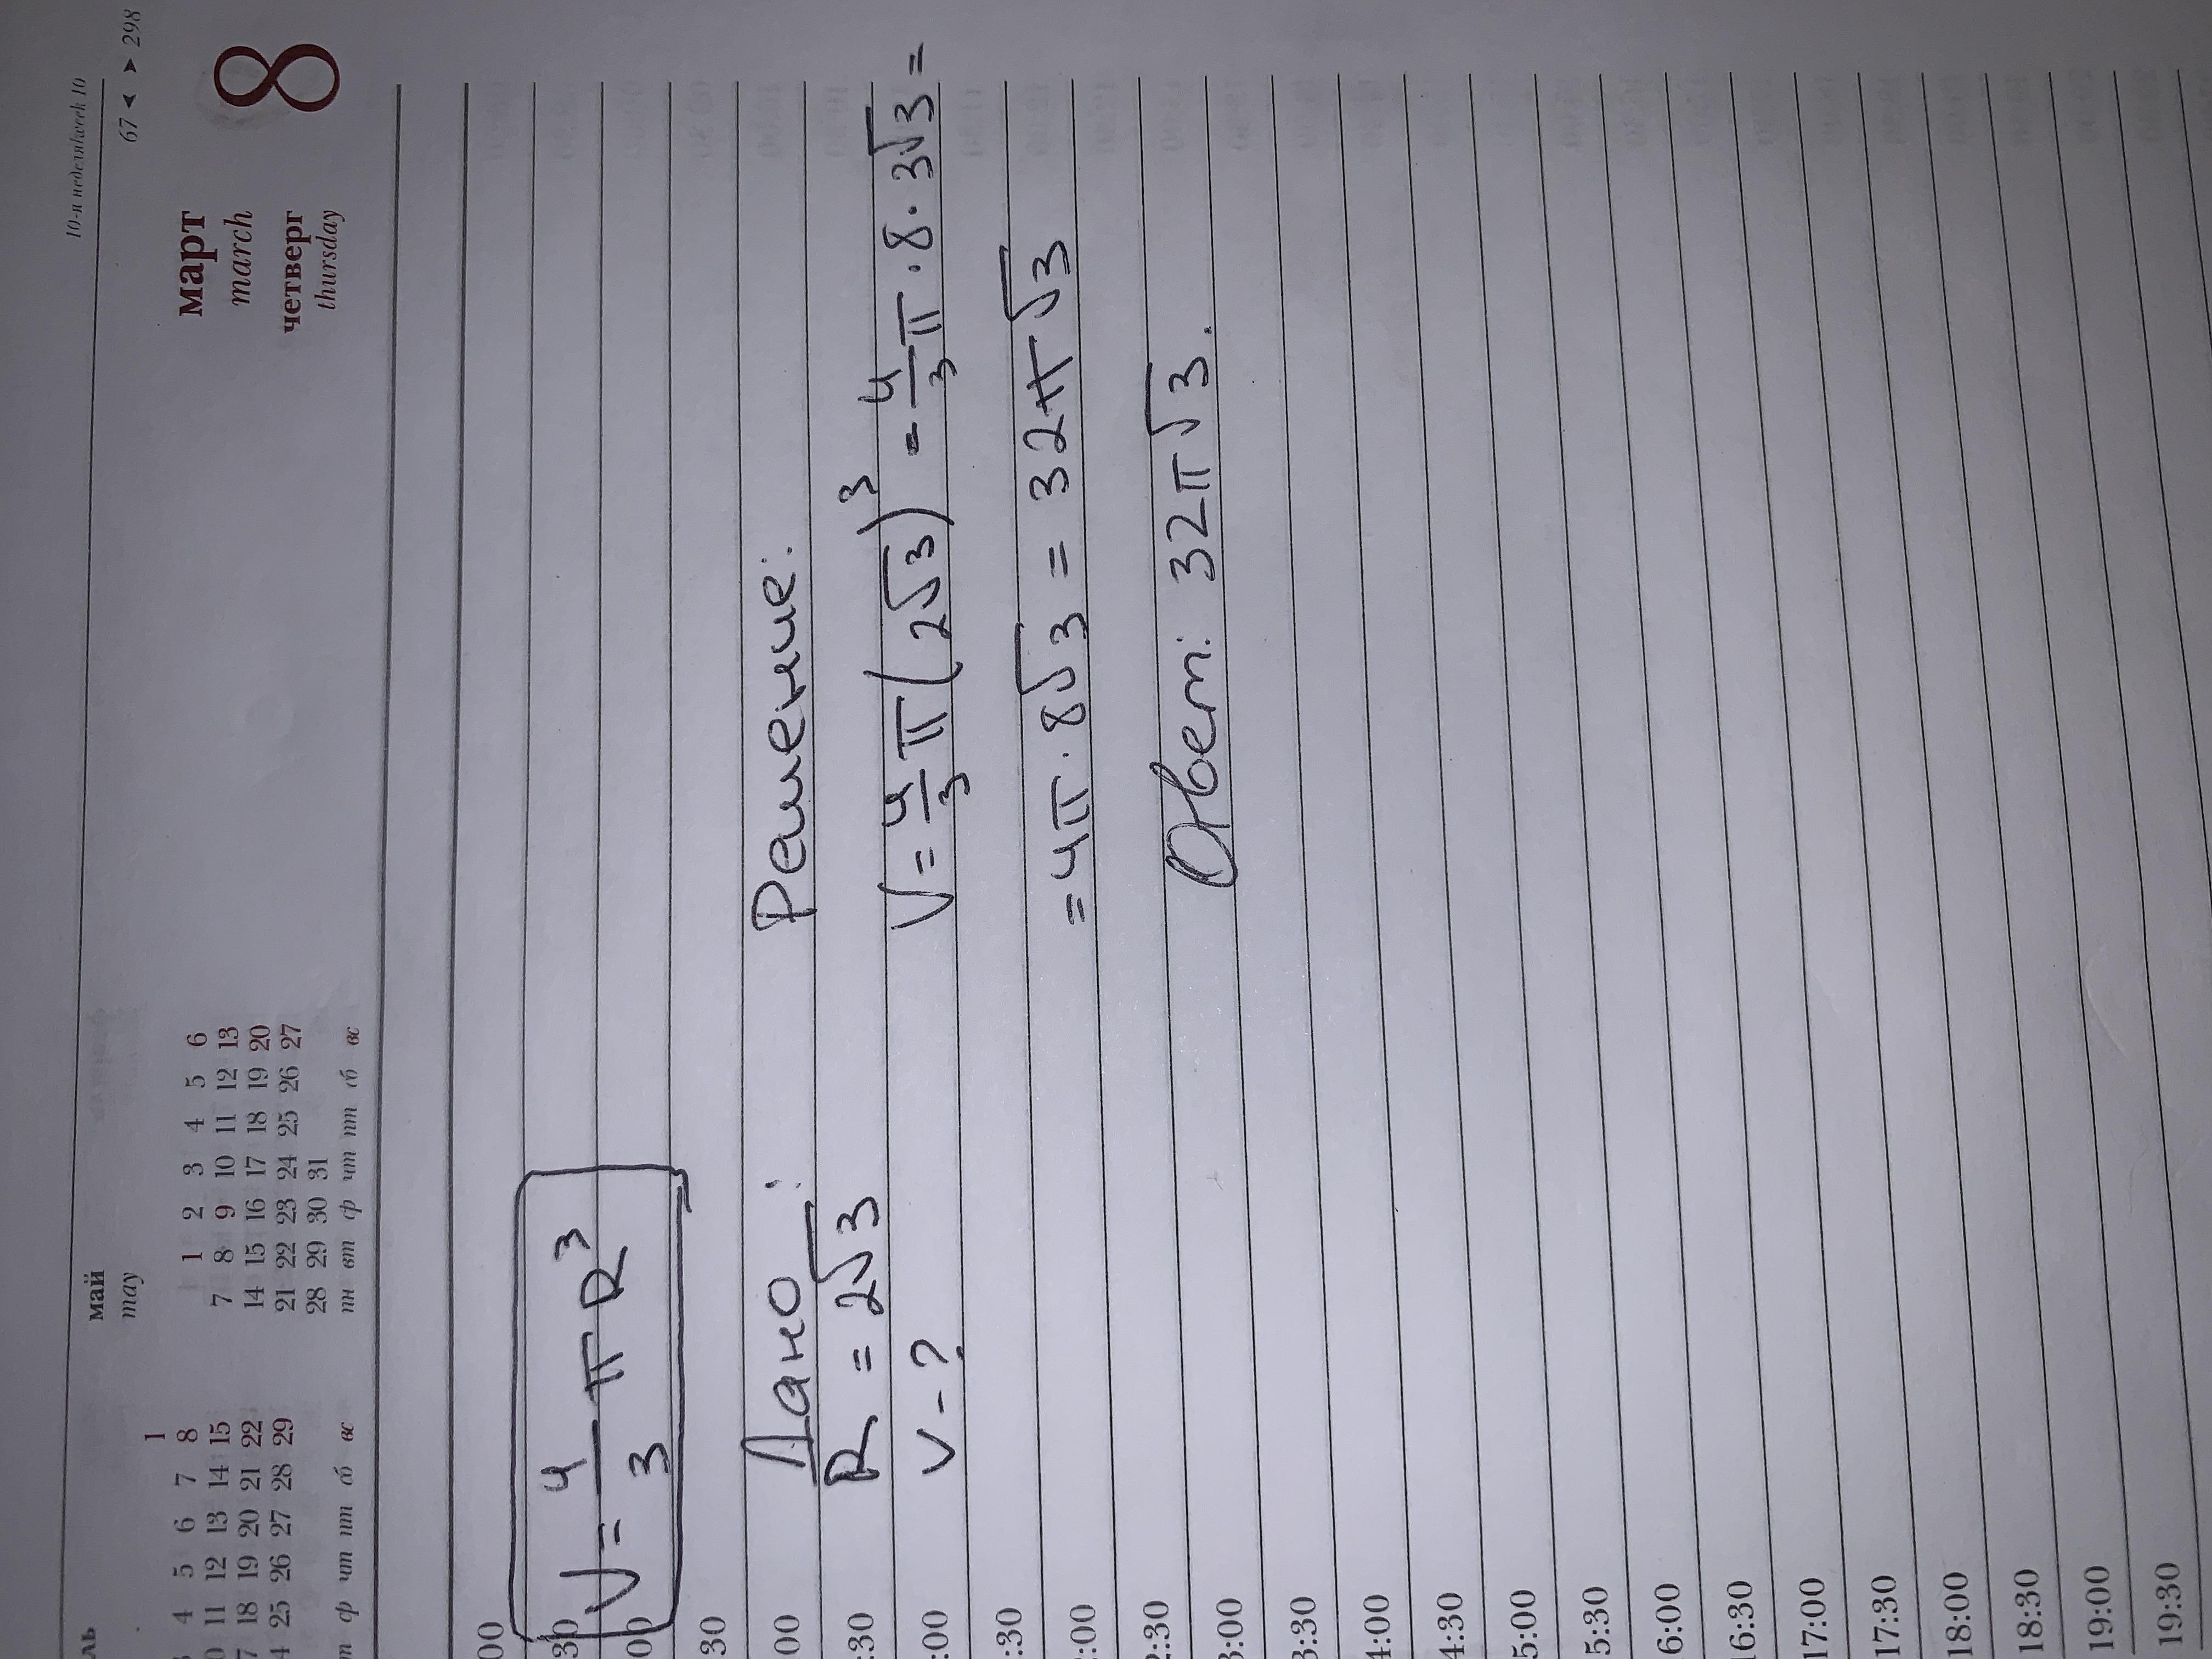 10-я неделя/week 10
ль
май
may
67 ◄ ► 298
март
march
8
четверг
thursday
1
4 5 6 7 8
11 12 13 14 15
18 19 20 21 22
25 26 27 28 29
ср чт пт сб вс
1 2 3 4 5 6
7 8 9 10 11 12 13
14 15 16 17 18 19 20
21 22 23 24 25 26 27
28 29 30 31
пн вт ср чт пт сб вс
00
30
V = 4/3 π R³
00
30
00
Дано:
Решение:
:30
R = 2√3
:00
V - ?
V = 4/3 π (2√3)³ = 4/3 π · 8 · 3√3 =
:30
:00
= 4π · 8√3 = 32π√3
2:30
3:00
Ответ: 32π√3.
3:30
4:00
4:30
5:00
5:30
6:00
16:30
17:00
17:30
18:00
18:30
19:00
19:30